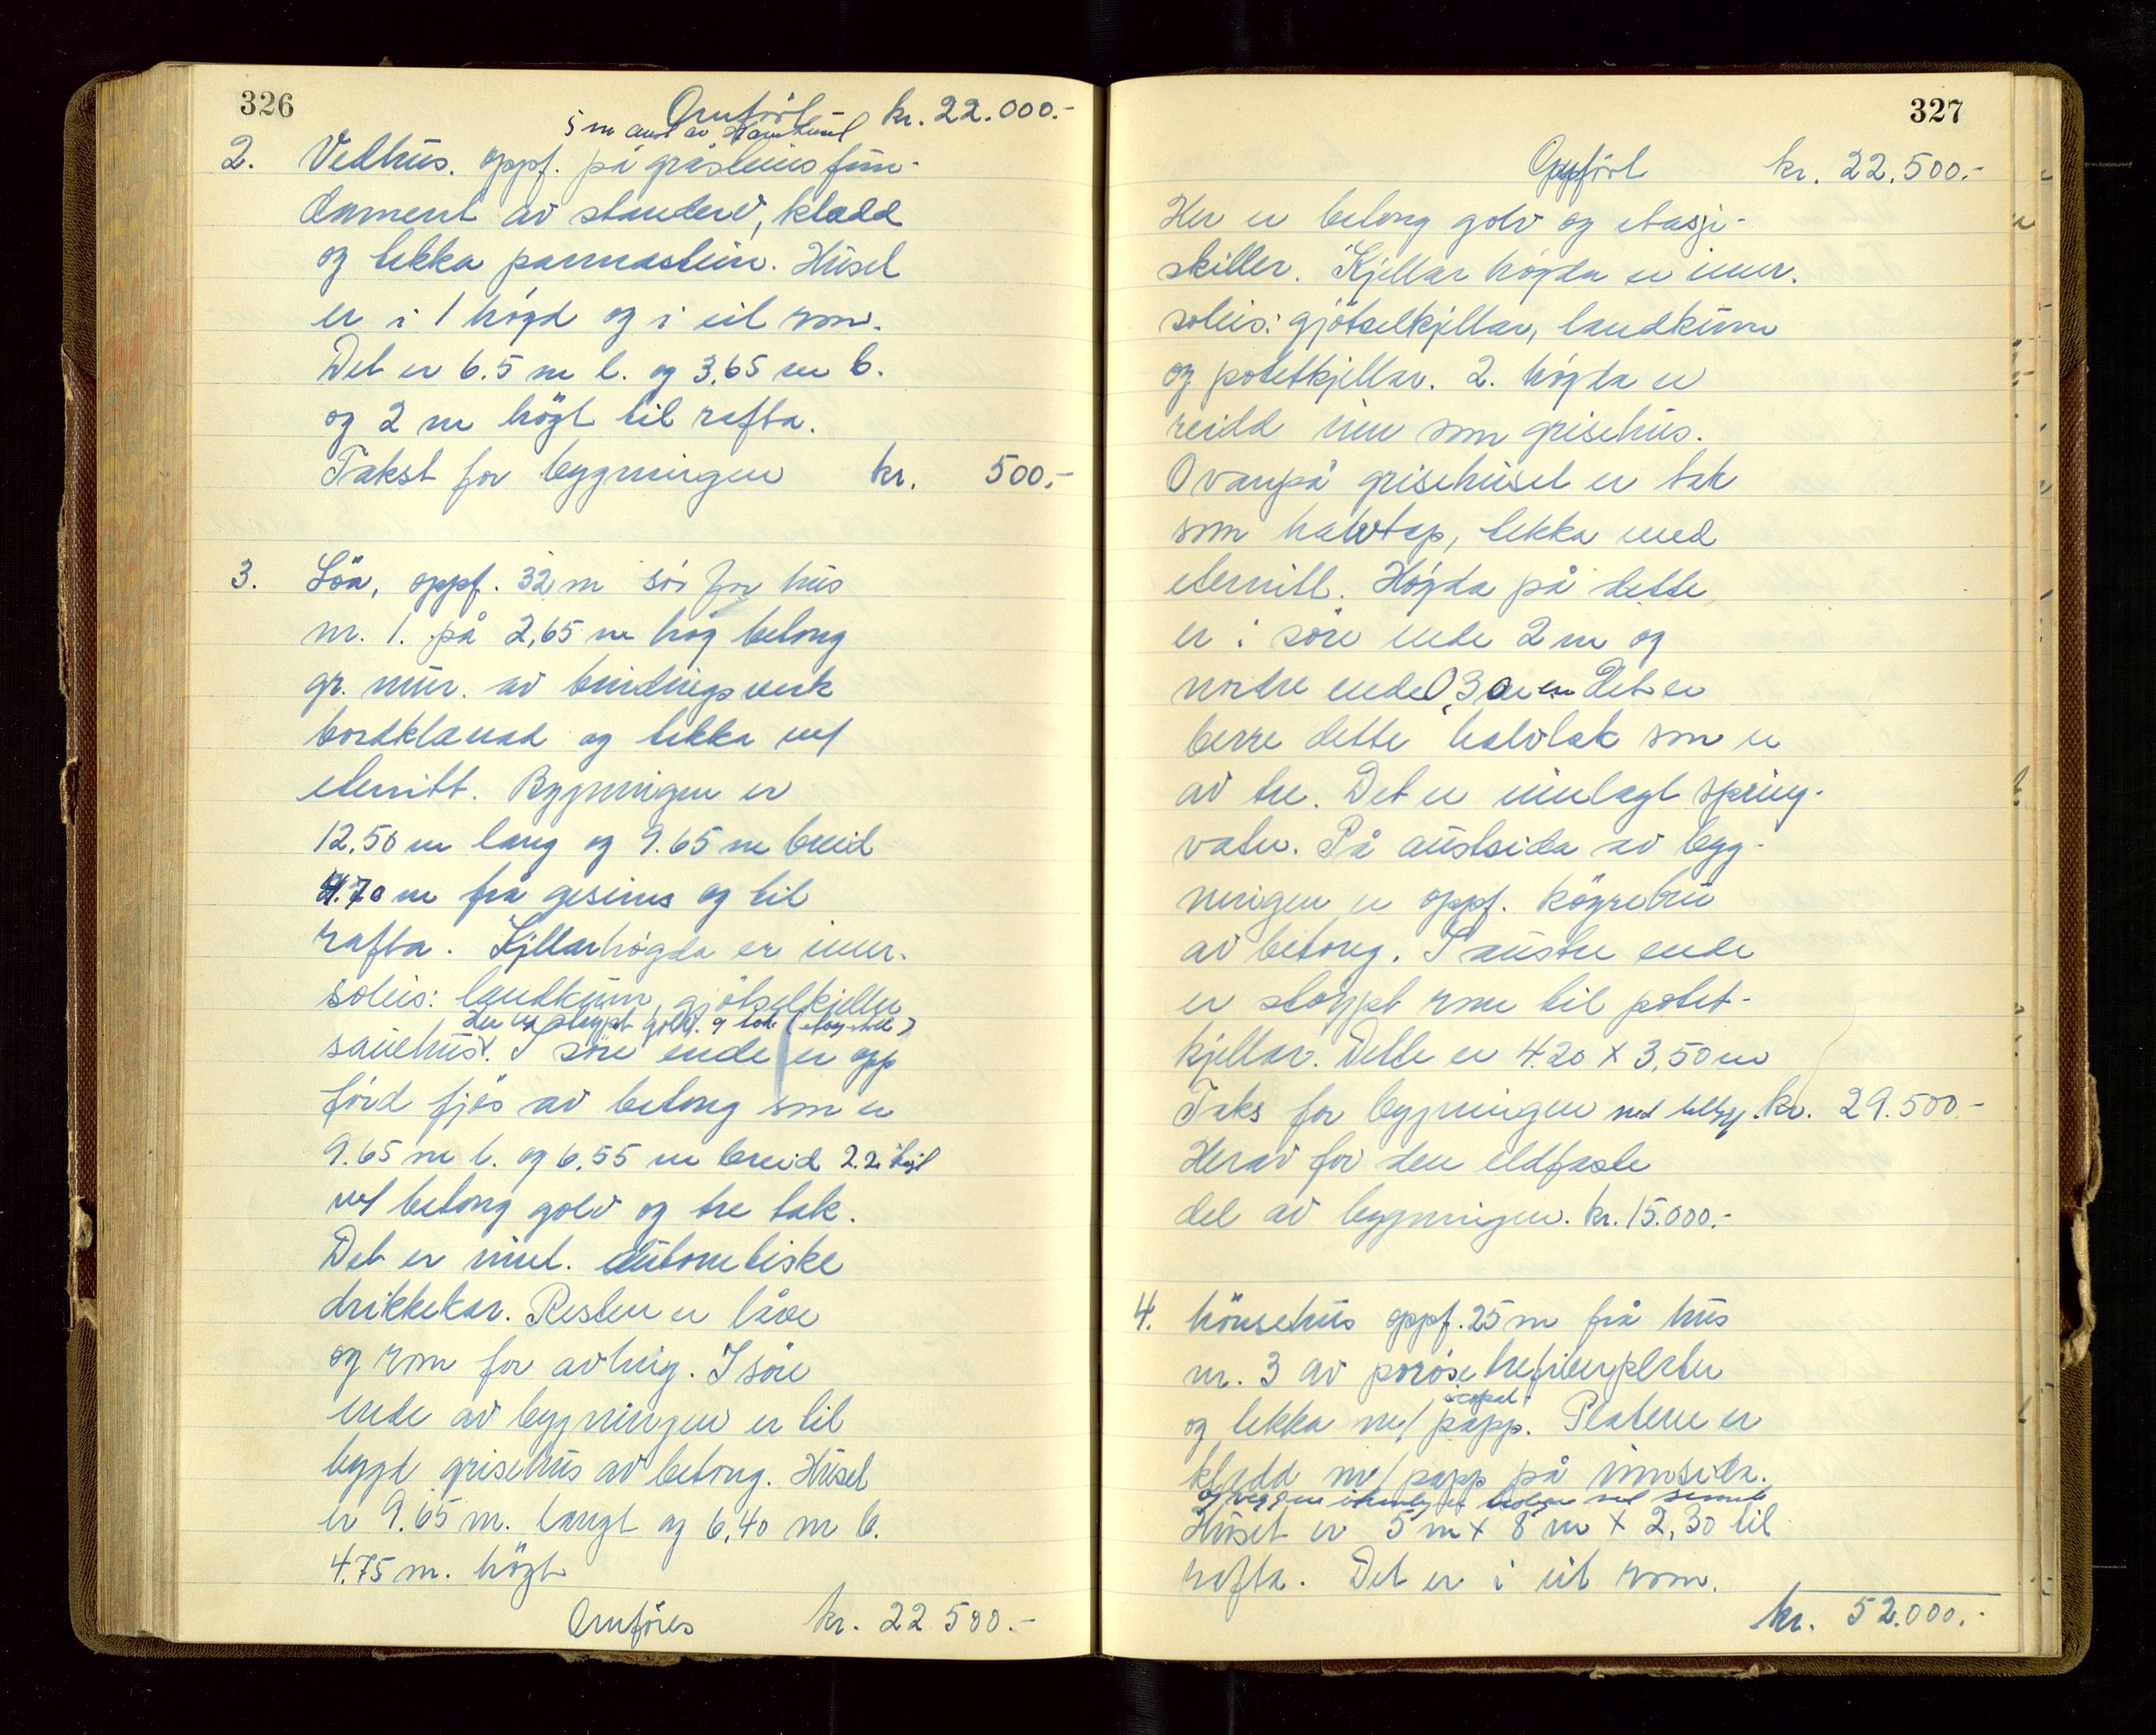 326
Omfört kr. 22.000.-
5 m aust av
2. Vedhus. oppf. på gråsteins fun-
dament av standerv, kledd
og tekka pannestein. Huset
er i 1 högd og i eit rom.
Det er 6.5 m l. og 3.65 m b.
og 2 m högt til rafta.
Takst for bygningen kr. 500.-
3. Löa, oppf. 32 m sör for hus
nr. 1. på 2,65 m hög betong
gr. mur. av bindingsverk
bordklænad og tekka m/
eternitt. Bygningen er
12.50 m lang og 9.65 m breid
4.70 m frå gesims og til
rafta. Kjellarhögda er innr.
soleis: landkum, gjötselkjellar
der er støypt golv. og tak
sauehus. I söre ende er opp
förd fjös av betong som er
9.65 m l. og 6.55 m breid 2.2 högt
m/ betong golv og tre tak.
Det er innl. automatiske
drikkekar. Resten er låve
og rom for avling. I söre
ende av bygningen er til
bygd grisehus av betong. Huset
er 9.65 m. langt og 6,40 m b.
4.75 m. högt
Omföres kr. 22 500.-
327
Oppfört kr. 22.500.-
Her er betong golv og etasje-
skiller. Kjellar högda er innr.
soleis: gjötselkjellar, landkum
og potetkjellar. 2. högda er
reidd inn som grisehus.
Ovanpå grisehuset er tak
som halvtap, tekka med
eternitt. Högda på dette
er i söre ende 2 m og
nordre ende 0,30 m Det er
berre dette halvtak som er
av tre. Det er innlagt spring-
vatn. På austsida av byg-
ningen er oppf. köyrebru
av betong. I austre ende
er støypt rom til potet-
kjellar. Dette er 4.20 x 3,50 m
Taks for bygningen med tilbygg. kr. 29.500.-
Herav for den eldfaste
del av bygningen. kr. 15.000.-
4. hönsehus oppf. 25 m frå hus
nr. 3 av poröse trefiberplater
og tekka m/ papp. Platene er
kledd m/ papp på innsida.
og veggene
Huset er 5 m x 8 m x 2,30 til
rafta. Det er i eit rom.
kr. 52.000.-